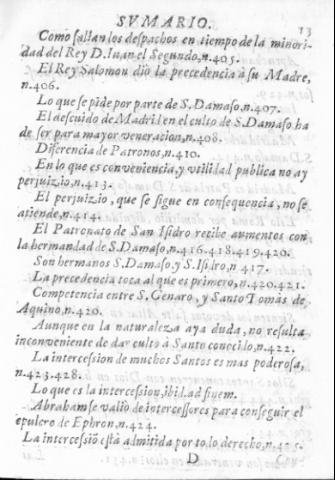 SVMARIO.
13
Como salian los despachos en tiempo de la minori-
dad del Rey D. Iuan el Segundo, n.405.
El Rey Salomon diò la precedencia à su Madre,
n.406.
Lo que se pide por parte de S. Damaso, n.407.
El descuido de Madril en el culto de S. Damaso ha
de ser para mayor veneracion, n.408.
Diferencia de Patronos, n.410.
En lo que es conveniencia, y utilidad publica no ay
perjuizio, n.413.
El perjuizio, que se sigue en consequencia, no se
atiende, n.414.
El Patronato de San Isidro recibe aumentos con
la hermandad de S. Damaso, n.416.418.419.420.
Son hermanos S. Damaso, y S. Isidro, n 417.
La precedencia toca al que es primero, n.420.421.
Competencia entre S. Genaro, y Santo Tomàs de
Aquino, n.420.
Aunque en la naturaleza aya duda, no resulta
inconveniente de dar culto à Santo conocido, n.422.
La intercession de muchos Santos es mas poderosa,
n.423.428.
Lo que es la intercession, ibid. ad finem.
Abraham se valiò de intercessores para conseguir el
sepulcro de Ephron, n.424.
La intercessiō està admitida por todo derecho, n.425.
D